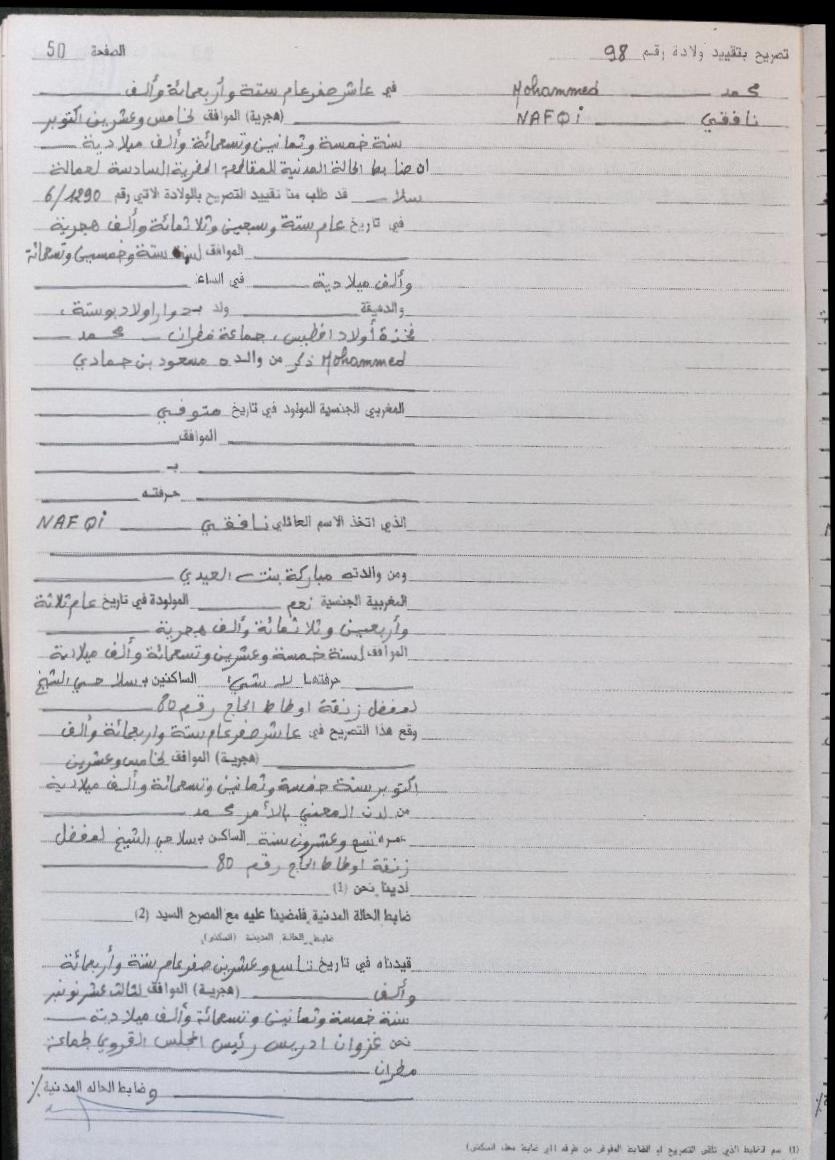 تصريح بتقييد ولادة رقم 98
الصفحة 50
محمد Mohammed
نافقي NAFQi
في عاشر صفر عام ستة وأربعمائة وألف
(هجرية) الموافق لخامس وعشرين اكتوبر
سنة خمسة وثمانين وتسعمائة وألف ميلادية
ان ضابط الحالة المدنية للمقاطعة الحضرية السادسة لعمالة
سلا قد طلب منا تقييد التصريح بالولادة الآتي رقم 6/1290
في تاريخ عام ستة وسبعين وثلاثمائة وألف هجرية
الموافق لسنة ستة وخمسين وتسعمائة
وألف ميلادية في الساعة
والدقيقة ولد بدوار اولاد بوستة،
فخذة أولاد افطيس، جماعة مطران محمد
Mohammed ذكر من والده مسعود بن حمادي
المغربي الجنسية المولود في تاريخ متوفي
الموافق
بـ
حرفته
الذي اتخذ الاسم العائلي نافقي NAFQi
ومن والدته مباركة بنت العيدي
المغربية الجنسية نعم المولودة في تاريخ عام ثلاثة
وأربعين وثلاثمائة وألف هجرية
الموافق لسنة خمسة وعشرين وتسعمائة وألف ميلادية
حرفتها لا شيء الساكنين بـ سلا حي الشيخ
لمفضل زنقة اوطاط الحاج رقم 80
وقع هذا التصريح في عاشر صفر عام ستة واربعمائة وألف
(هجرية) الموافق لخامس وعشرين
اكتوبر سنة خمسة وثمانين وتسعمائة وألف ميلادية
من لدن المعني بالأمر محمد
عمره تسع وعشرون سنة الساكن بـ سلا حي الشيخ لمفضل
زنقة اوطاط الحاج رقم 80
لدينا نحن (1)
ضابط الحالة المدنية فامضينا عليه مع المصرح السيد (2)
ضابط الحالة المدنية (المكتب)
قيدناه في تاريخ تاسع وعشرين صفر عام ستة وأربعمائة
وألف (هجرية) الموافق لثالث عشر نونبر
سنة خمسة وثمانين وتسعمائة وألف ميلادية
نحن غزوان ادريس رئيس المجلس القروي لجماعة
مطران
وضابط الحالة المدنية ./.